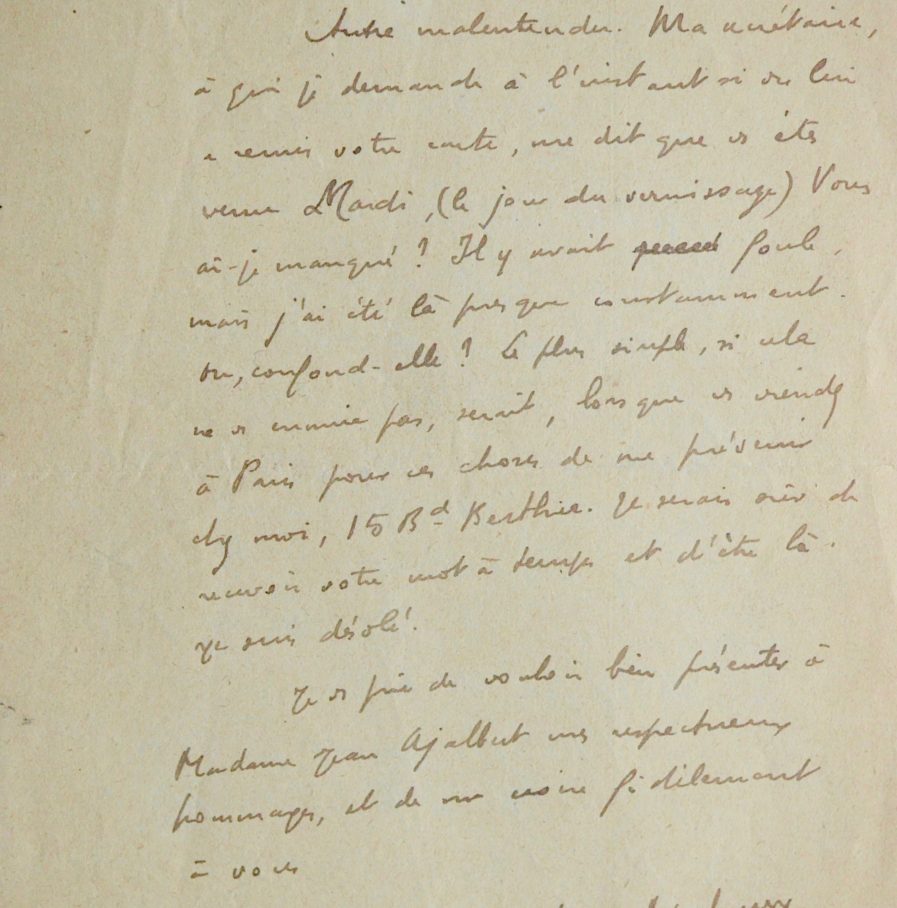 Autre malentendu. Ma secrétaire,
à qui je demande à l'instant si vs lui
a remis votre carte, me dit que vs êtes
venu Mardi, (le jour du vernissage) Vous
ai-je manqué ? Il y avait foule,
mais j'ai été là presque constamment.
ou, confond-elle ? Le plus simple, si cela
ne vs ennuie pas, serait, lorsque vs viendrez
à Paris pour ces choses de me prévenir
chez moi, 15 Bd Berthier. Je serais sûr de
recevoir votre mot à temps et d'être là.
Je suis désolé.
Je vs prie de vouloir bien présenter à
Madame Jean Ajalbert mes respectueux
hommages, et de me croire fidèlement
à vous